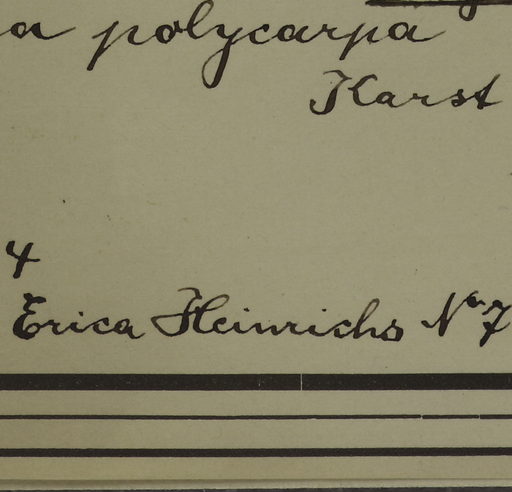 a polycarpa
Karst
4
Erica Heinrichs No 7